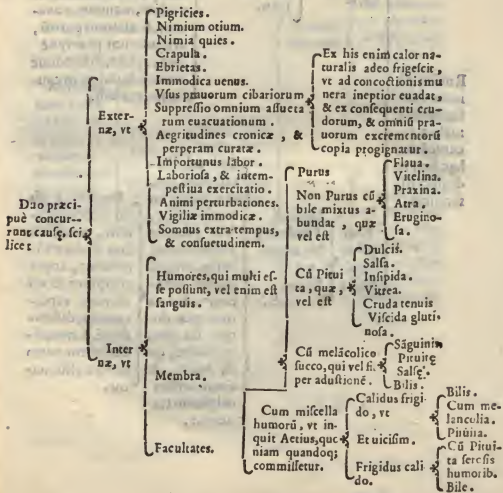 Duo præci-
puè concur-
runt causę, sci
licet
Exter-
næ, vt
Pigricies.
Nimium otium.
Nimia quies.
Crapula.
Ebrietas.
Immodica uenus.
Vsus prauorum cibariorum
Suppressio omnium assueta
rum euacuationum.
Aegritudines cronicæ, &
perperam curatæ.
Importunus labor.
Laboriosa, & intem-
pestiua exercitatio.
Animi perturbationes.
Vigiliæ immodicæ.
Somnus extra tempus,
& consuetudinem.
Ex his enim calor na-
turalis adeo frigescit,
vt ad concoctionis mu
nera ineptior euadat,
& ex consequenti cru-
dorum, & omniũ pra-
uorum excrementorũ
copia progignatur.
Inter
næ, vt
Humores, qui multi es-
se possunt, vel enim est
sanguis.
Purus
Non Purus cũ
bile mixtus a-
bundat, quæ
vel est
Flaua.
Vitelina.
Praxina.
Atra.
Erugino-
sa.
Cũ Pitui
ta, quæ,
vel est
Dulcis.
Salsa.
Insipida.
Vitrea.
Cruda tenuis
Viscida gluti-
nosa.
Cũ melãcolico
succo, qui vel fi.
per adustionẽ.
Sãguinis
Pituitę
Salsę.
Bilis.
Cum miscella
humorũ, vt in-
quit Aetius, quo
niam quandoq;
commissetur.
Calidus frigi-
do, vt
Bilis.
Cum me-
lancolia.
Pituita.
Et uicisim.
Frigidus cali
do.
Cũ Pitui-
ta serosis
humorib.
Bile.
Membra.
Facultates.